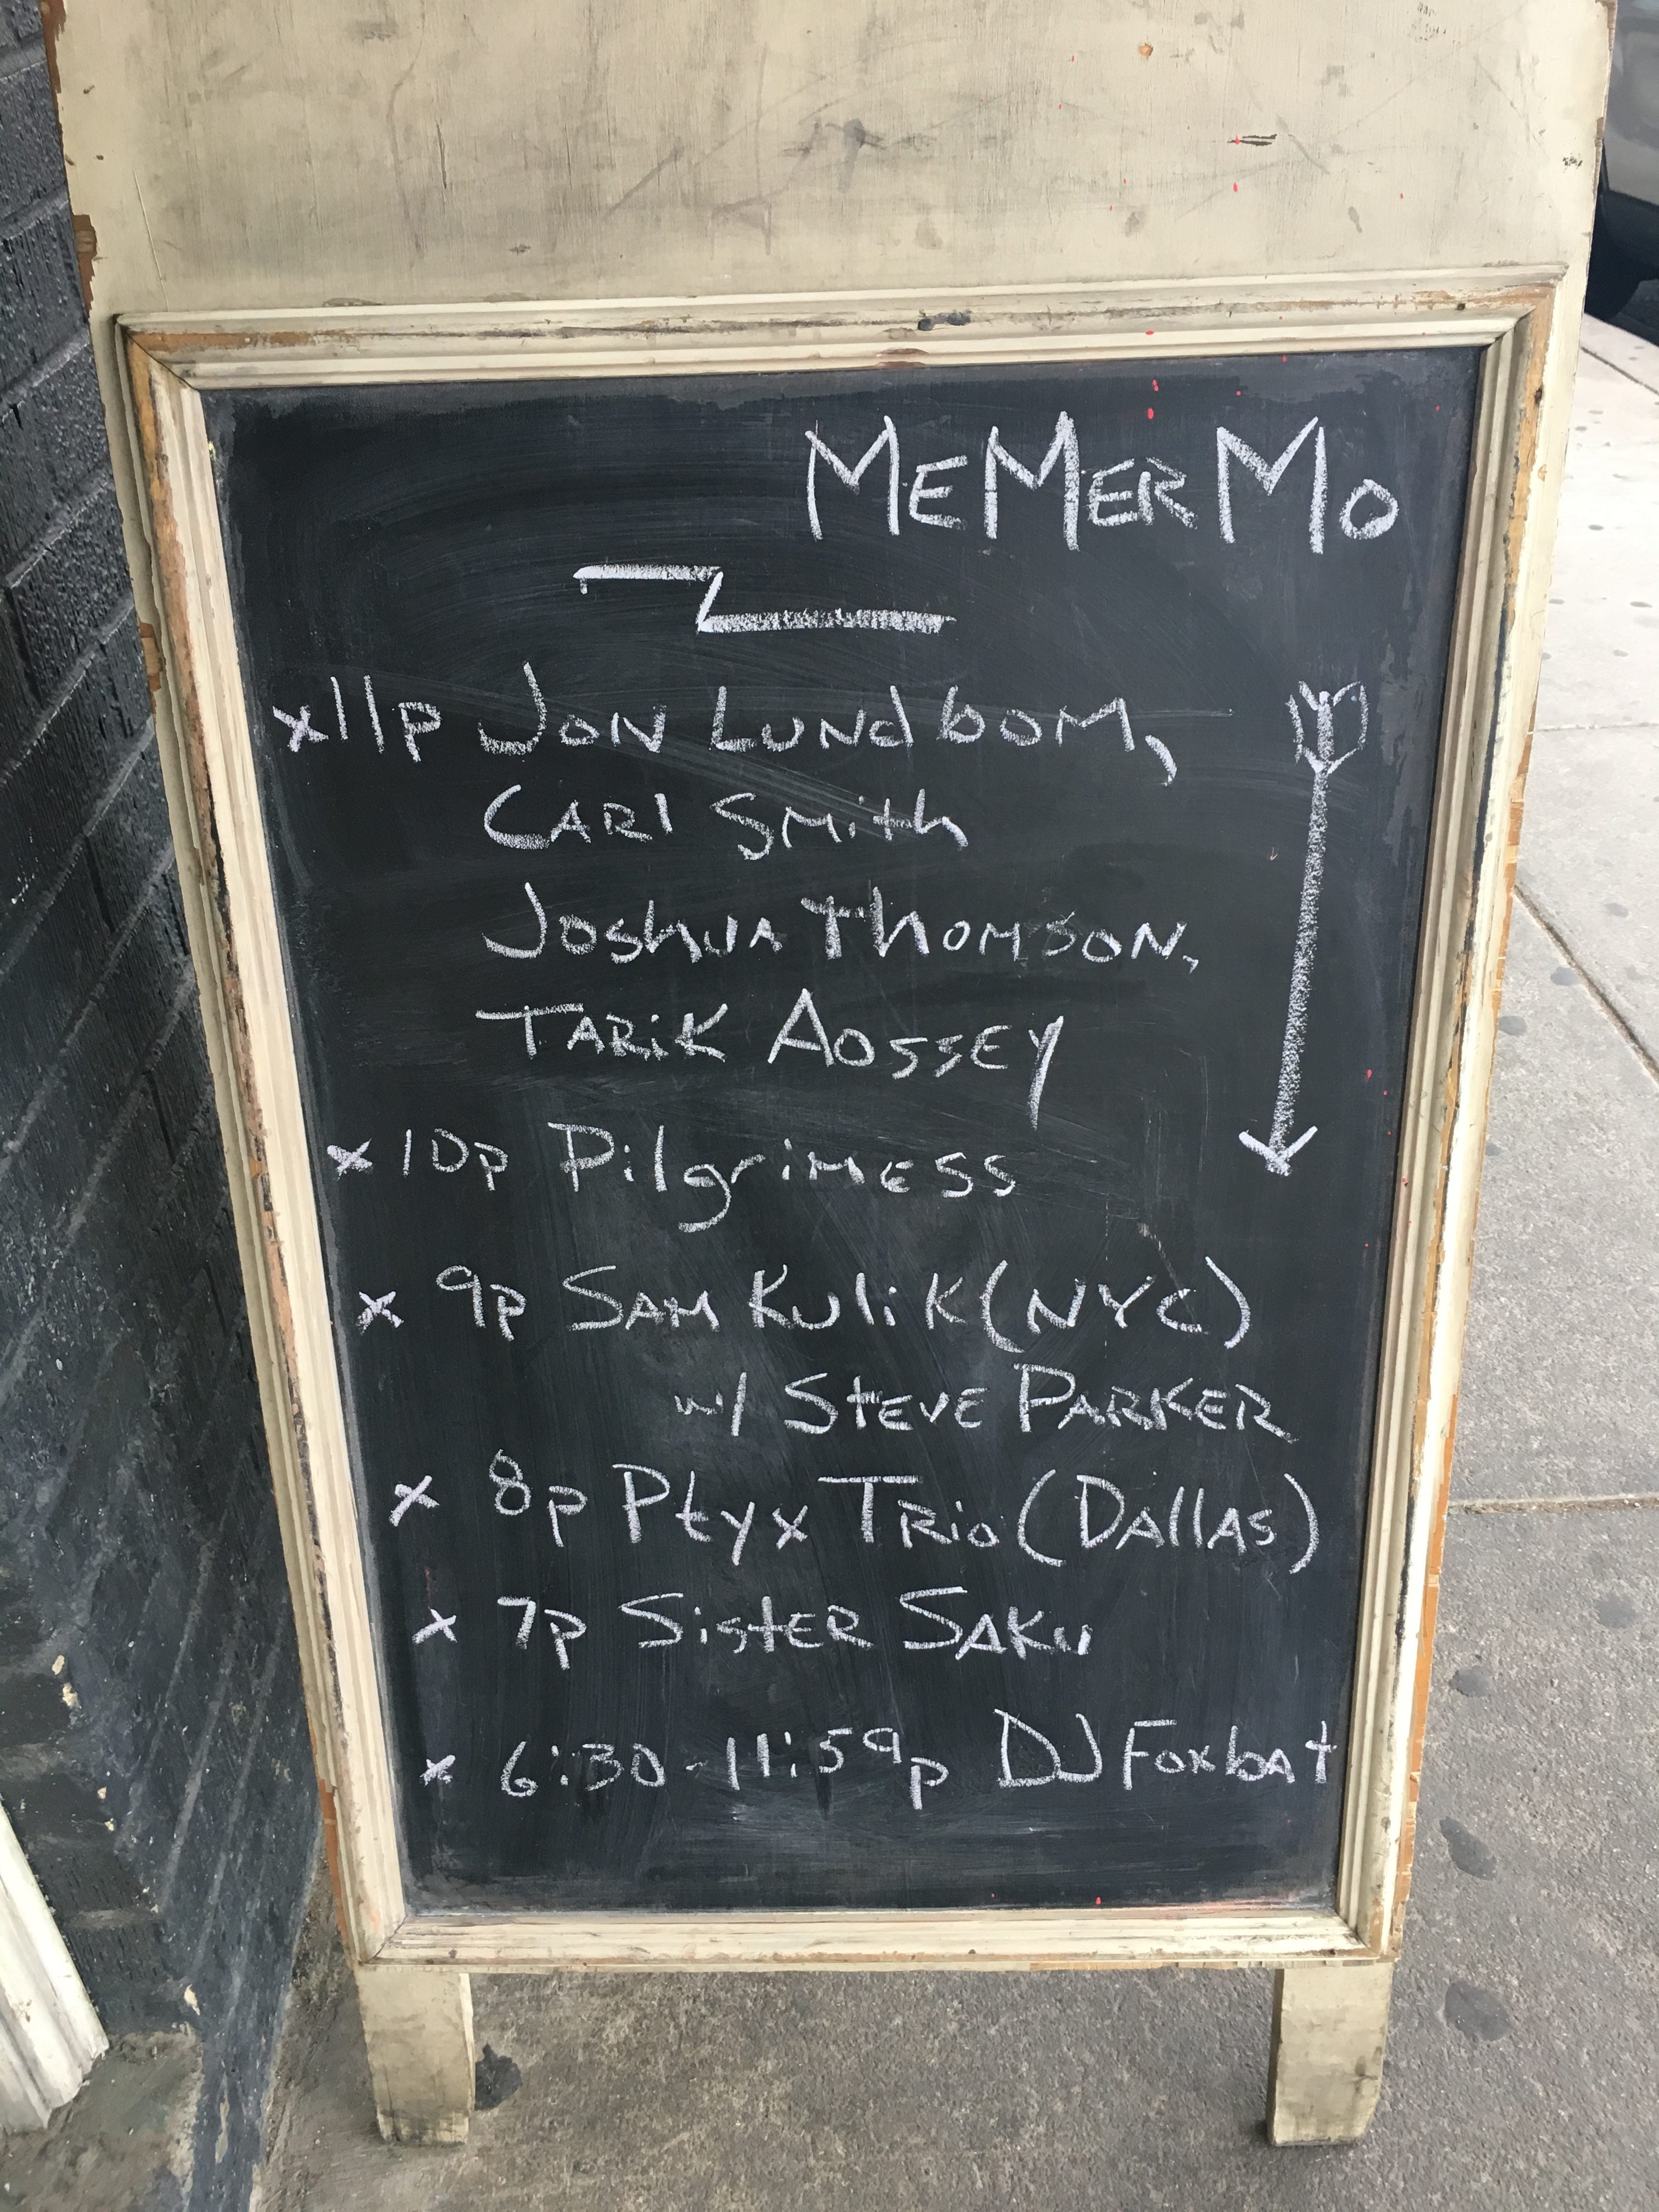 MEMERMO
x11p JON LUNdbOM,
CARl SMith
JOshUA thOMSON,
TARiK AOSSEY
x 10p PilgriMESS
x 9p SAM KUliK (NYC)
w/ StEVE PARKER
x 8p Ptyx TRio (DAllAS)
x 7p SistER SAKU
x 6:30-11:59p DJ Foxbat